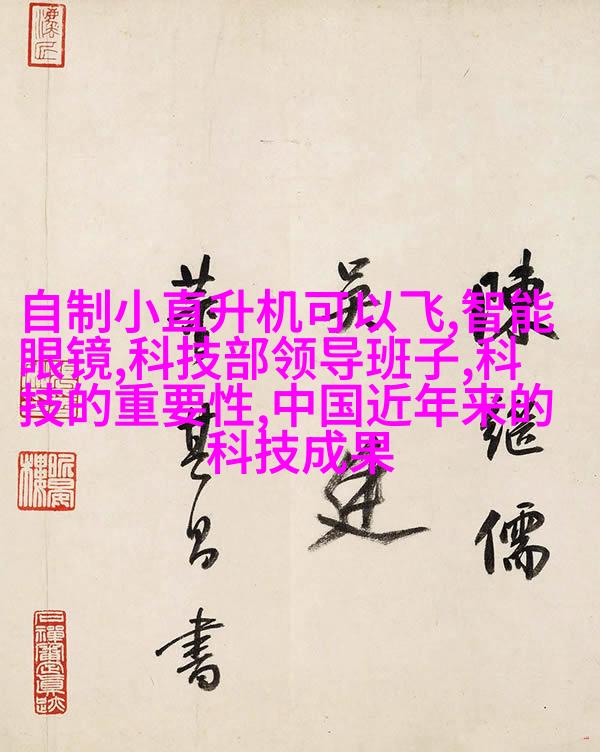 自制小直升机可以飞,智能
眼镜,科技部领导班子,科
技的重要性,中国近年来的
科技成果
陳繼儒
吴廷
董其昌書